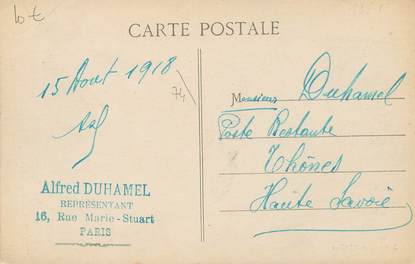 10€
CARTE POSTALE
15 Aout 1918
74
Monsieur Duhamel
Poste Restante
Thônes
Haute Savoie
Alfred DUHAMEL
REPRÉSENTANT
16, Rue Marie-Stuart
PARIS